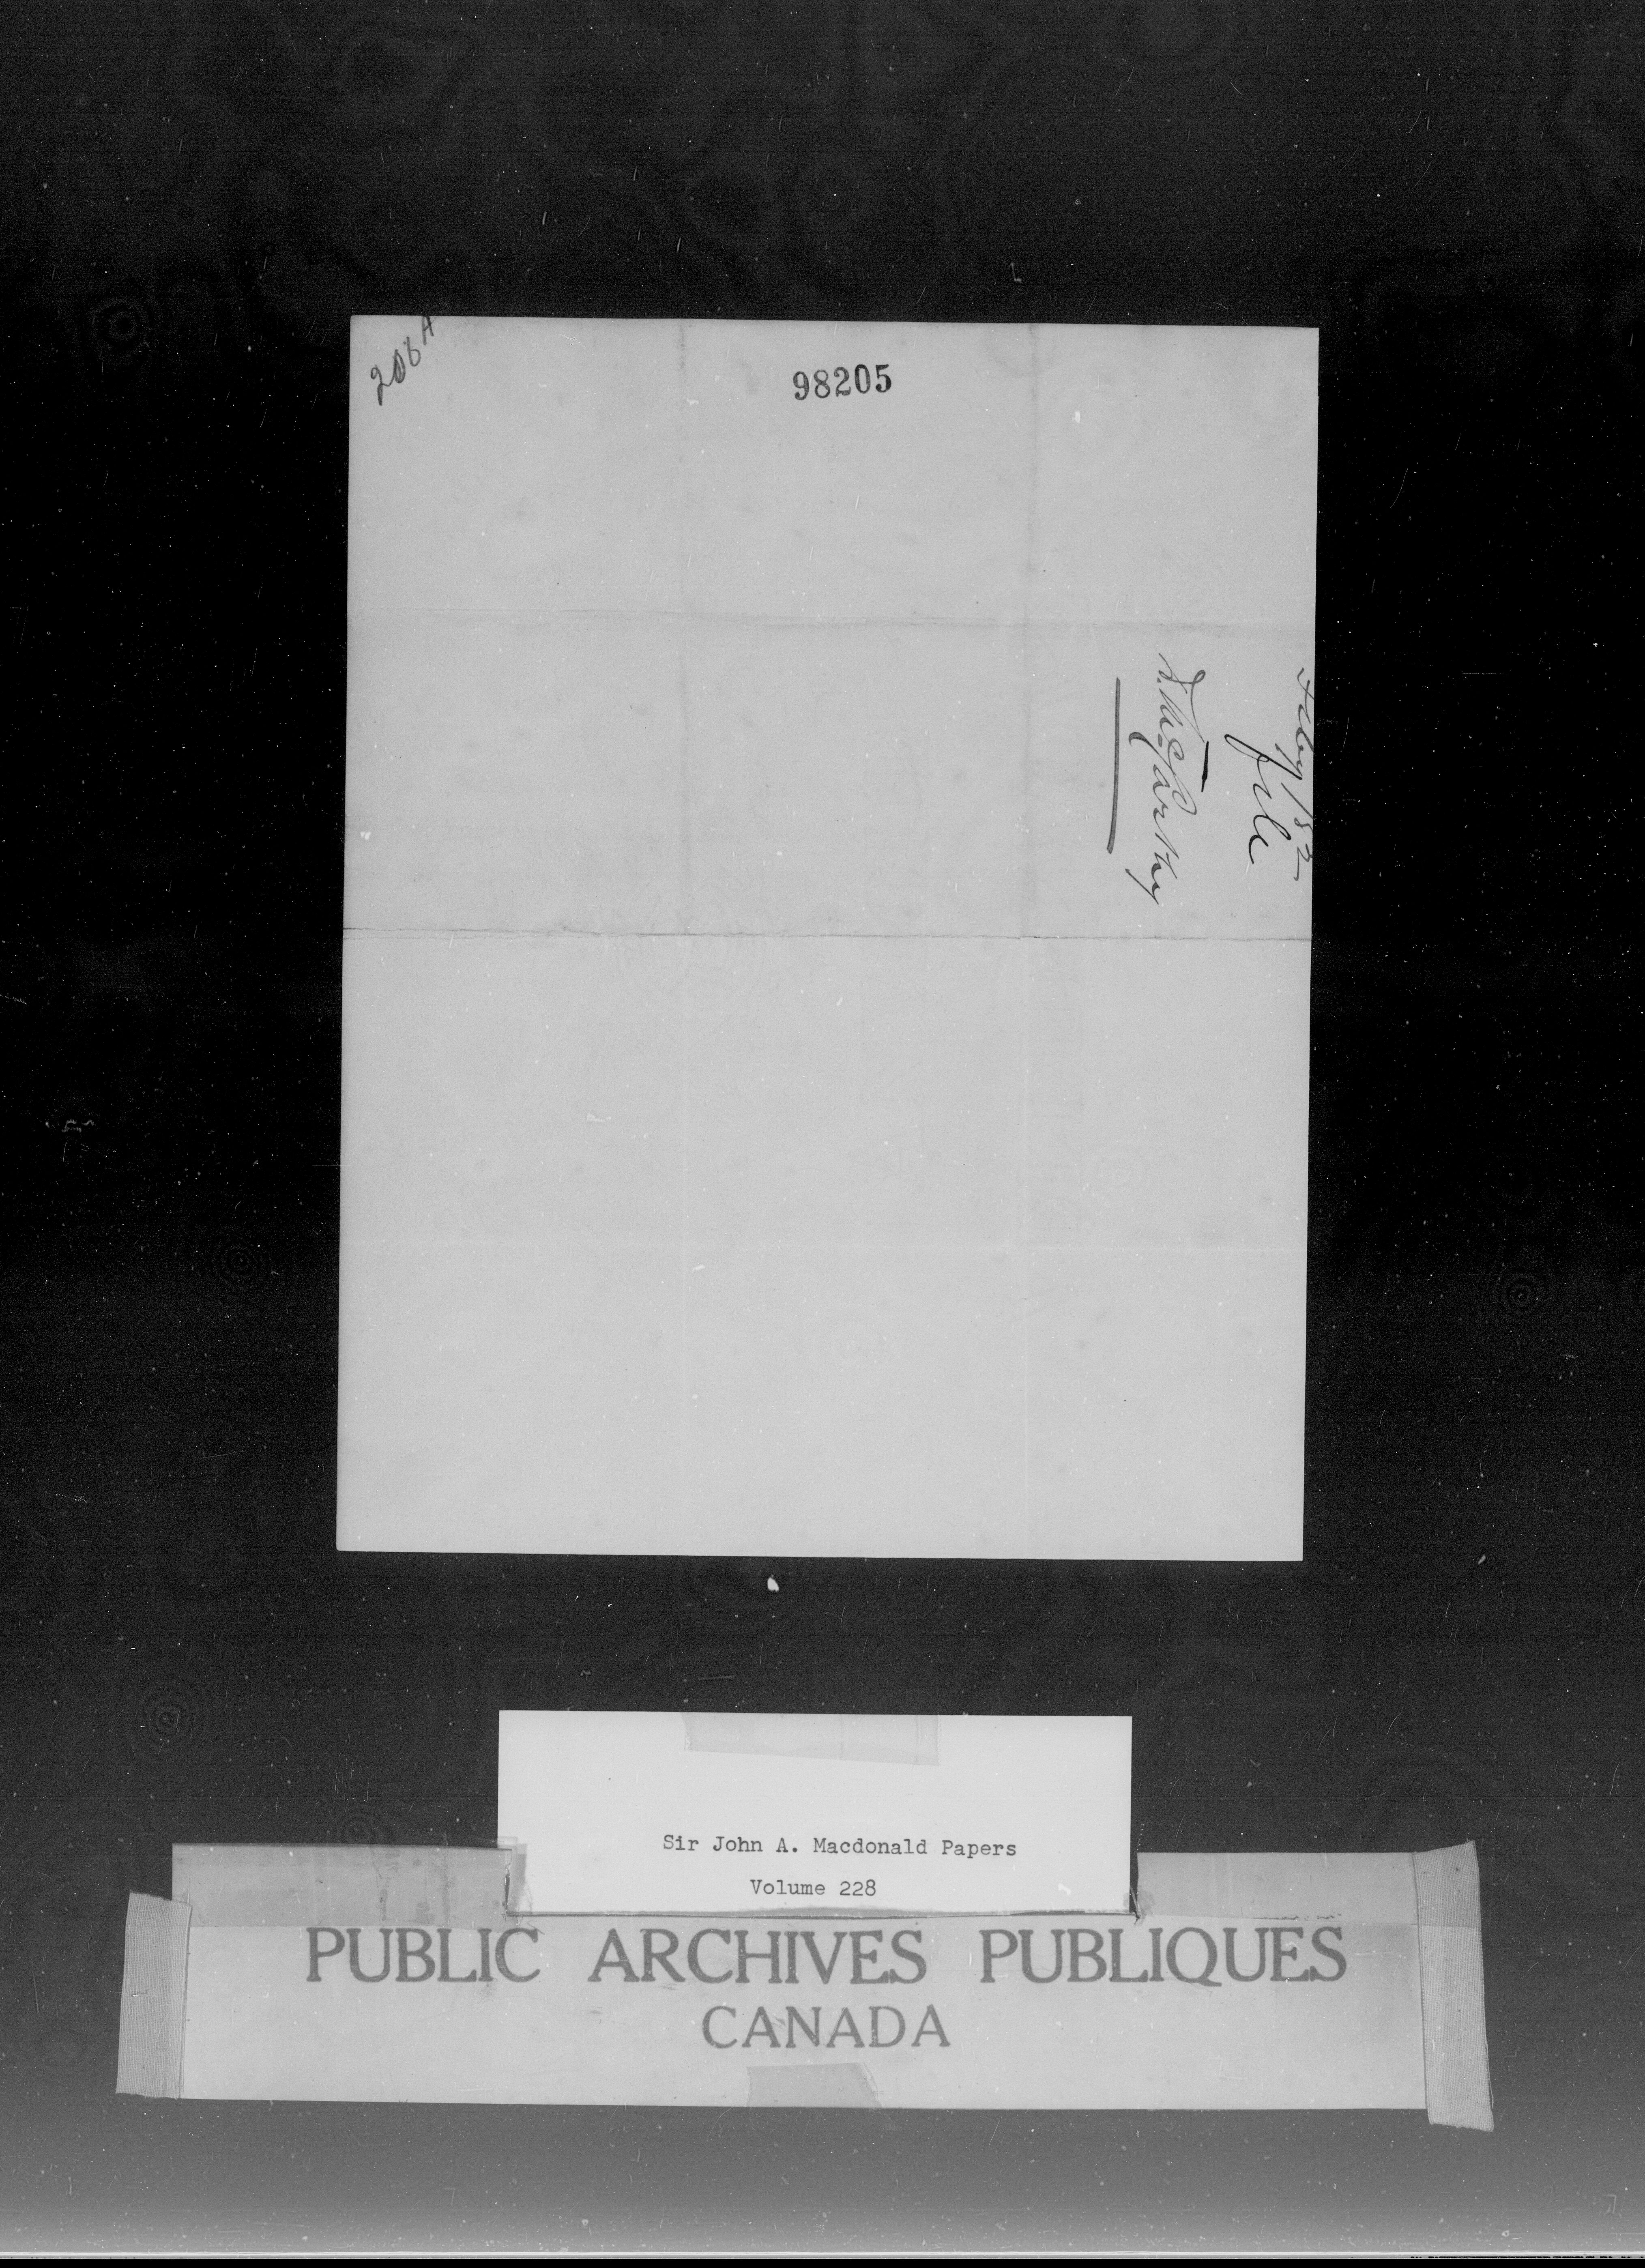 208A
98205
Feby /82
file
D. McCarthy
Sir John A. Macdonald Papers
Volume 228
PUBLIC ARCHIVES PUBLIQUES
CANADA